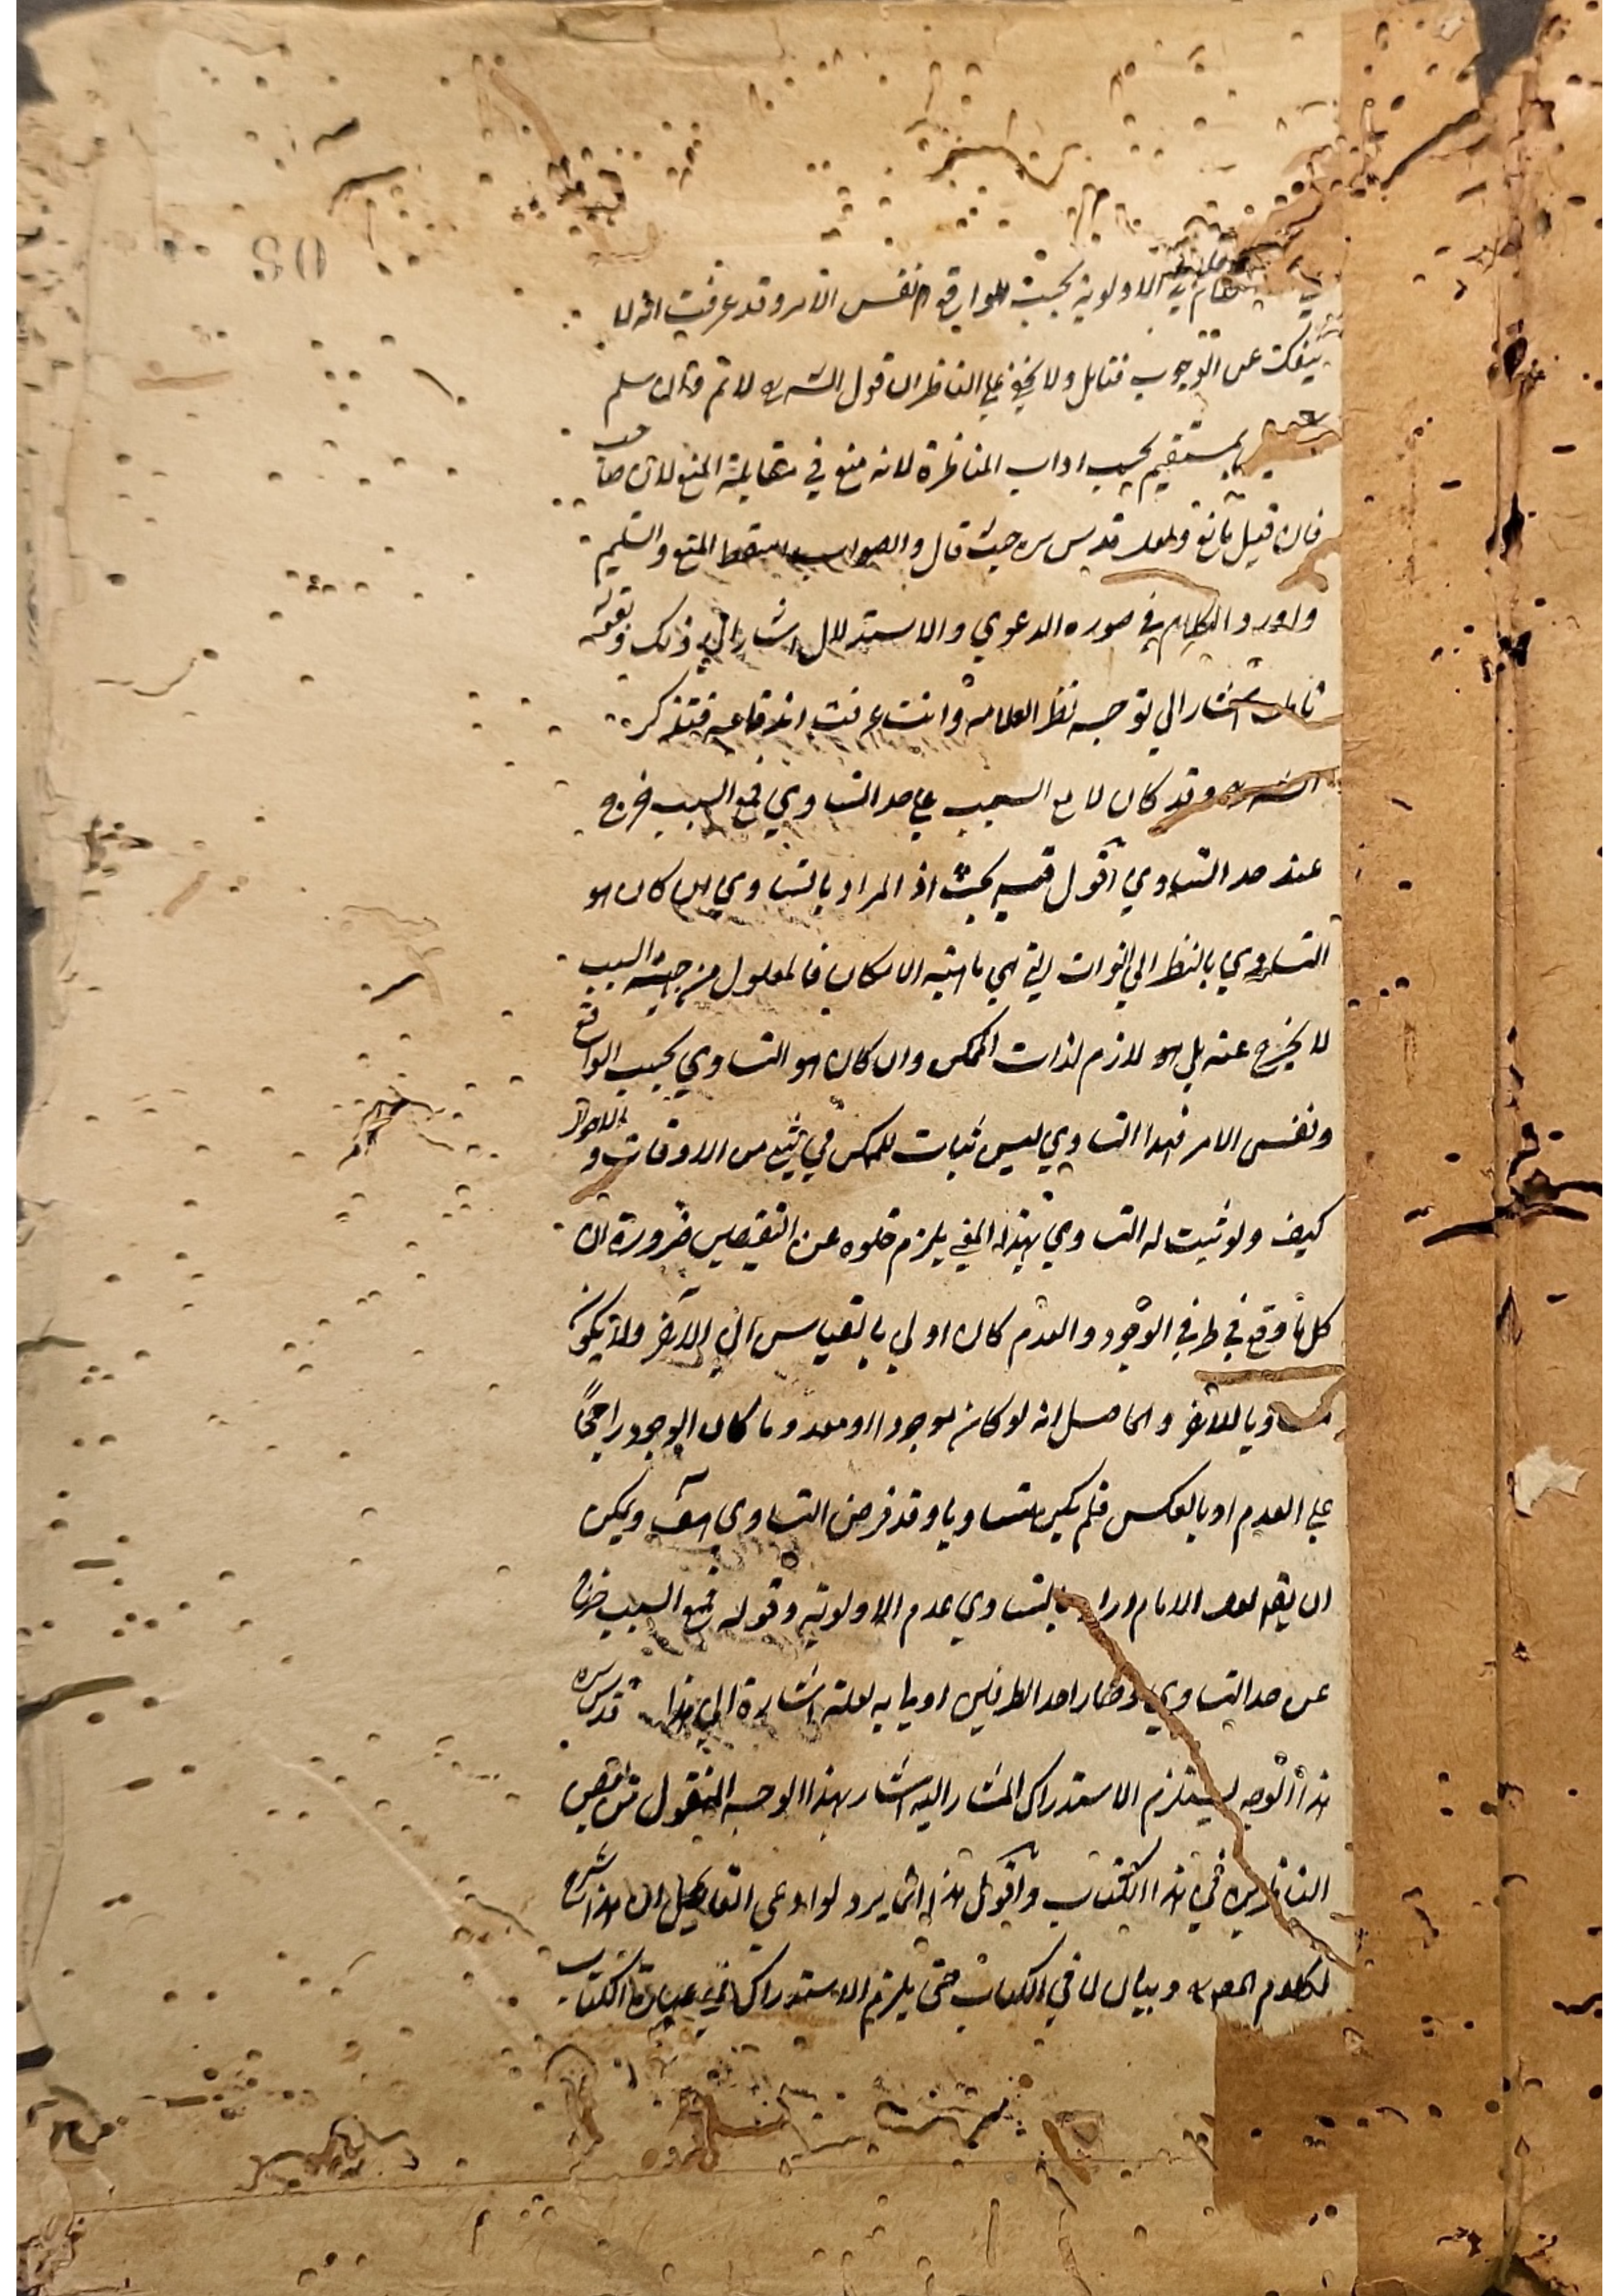 الاولوية بحسب الواقع و نفس الامر وقد عرفت انه لا
ينفك عن الوجوب فتامل ولا يخفى علي الناظر ان قول الشره لا تم وان سلم
بمستقيم بحسب اداب المناظرة لانه منع في مقابلة المنع لان صاحب
فان قيل مانع ولعله قدس سره حيث قال والصواب اسقاط المنع والتسليم
وايراد الكلام في صوره الدعوي والاستدلال اشار الي ذلك وبقوله
تامل اشار الي توجيه نظر العلامة وانت عرفت اندفاعه فتذكر
الشره وقد كان لا مع السبب علي حد التساوي فمع السبب خرج
عند حد التساوي اقول فيه بحث اذ المراد بالتساوي ان كان هو
التساوي بالنظر الي الذات التي هي ماهية الامكان فالمعلول من جهة السبب
لا يخرج عنه بل هو لازم لذات الممكن وان كان هو التساوي بحسب الواقع
ونفس الامر فهذا التساوي ليس ثبات للممكن في شيء من الاوقات و الاحوال
كيف ولو ثبت له التساوي بهذا المعني يلزم خلوه عن النقيضين ضرورة ان
كل ما وقع في طرفي الوجود والعدم كان اولي بالقياس الي الاخر ولا يكون
مساويا للاخر والحاصل انه لو كان موجودا او معدوما كان الوجود راجحًا
علي العدم او بالعكس فلم يكن متساويا وقد فرض التساوي هف ويمكن
ان يقه لعل الامام اراد بالتساوي عدم الاولوية وقوله فمع السبب خرج
عن حد التساوي وصار احد الطرفين اولي به لعله اشارة الي هذا قدس سره
هذا الوجه يستلزم الاستدراك المشار اليه اشار بهذا الوجه المنقول من بعض
الناظرين في هذا الكتاب واقول هذا انما يرد لوادعي القايل ان هذا شرح
لكلام المصره وبيان لما في الكتاب حتي يلزم الاستدراك في عبارة الكتاب